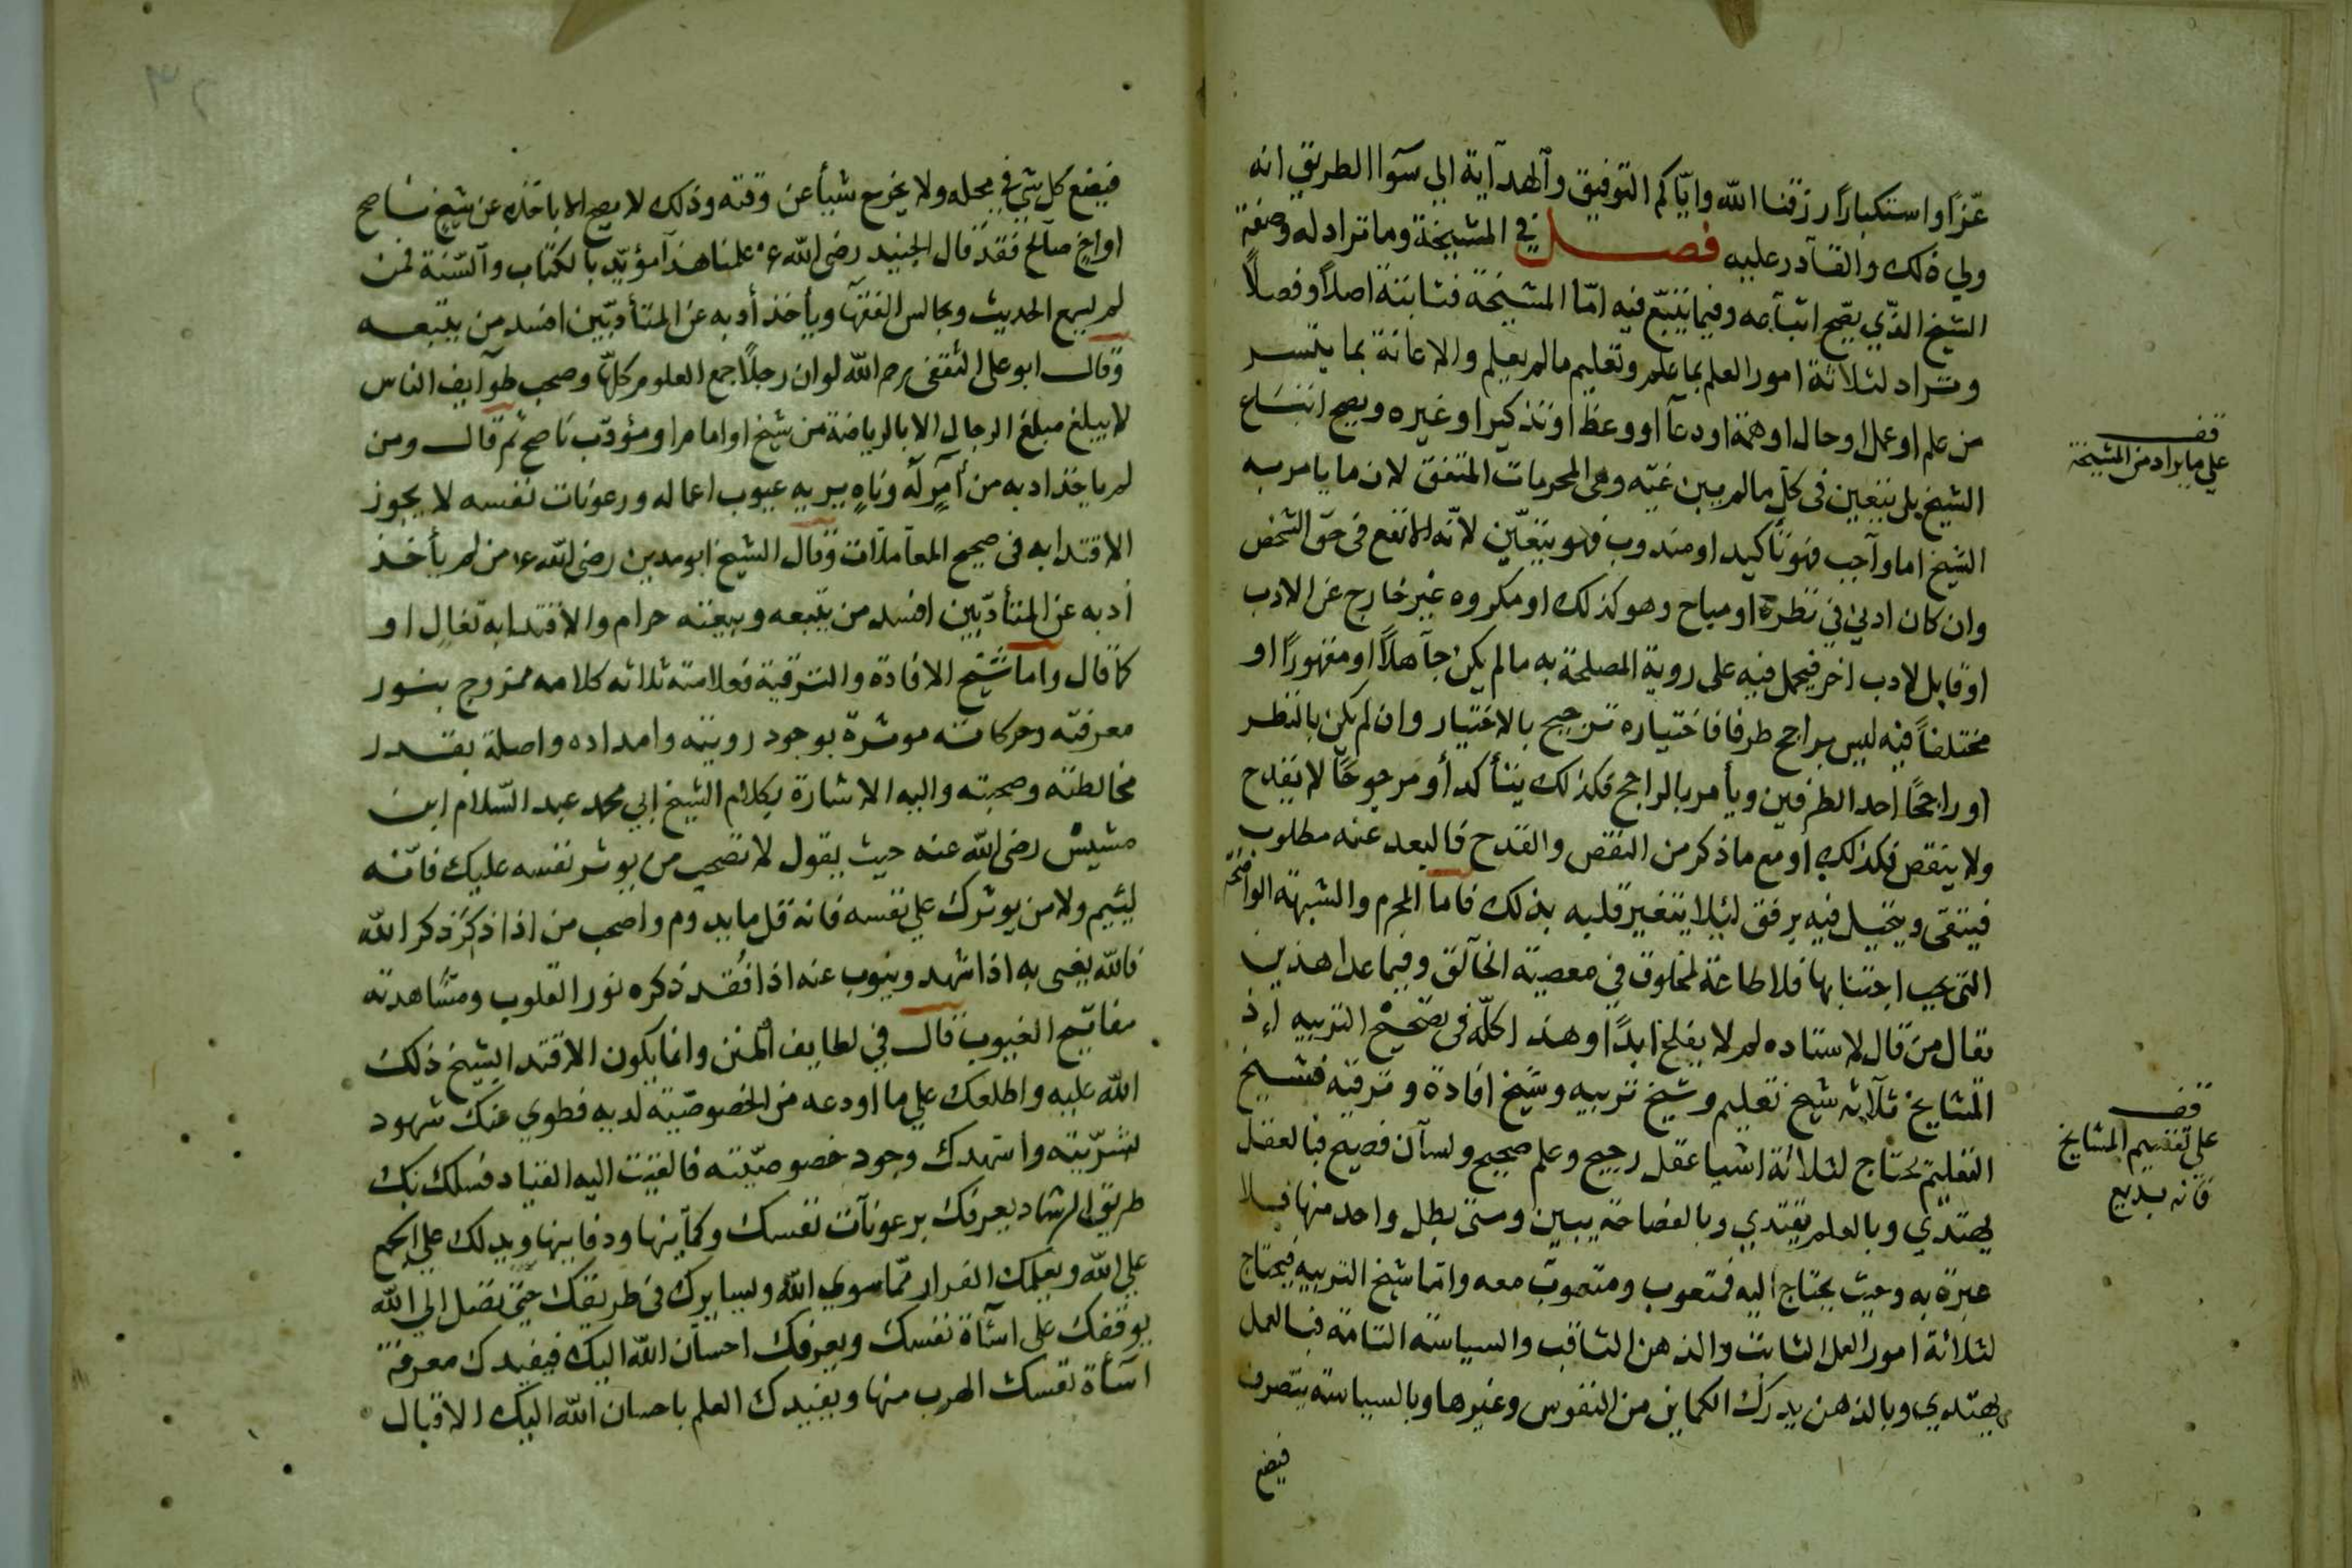 عزّا واستكبارًا رزقنا الله واياكم التوفيق والهدآية الي سوآا الطريق انه
ولي ذلك والقآدر عليه فصل في المشيخة وما تراد له وصفة
الشيخ الذي يصح اتبآعه وفيما يتبع فيه امّا المشيخة فثابتة اصلاً وفصلاً
وتراد لثلاثة امور العلم بما علم وتعليم مالم يعلم والاعانة بما يتيسر
من علم او عمل او حال او همة او دعآ او وعظ او تذكير او غيره ويصح اتباع
الشيخ بل يتعين في كل مالم يبين غيّه وهي المحرمات المتفق لان ما يامر به
الشيخ اما وآجب فهو تأكيد او مندوب فهو يتعيّن لانّه الانفع في حق الشخص
وان كان ادني في نظره او مباح وهو كذلك او مكروه غير خارج عن الادب
او قابل لادب اخر فيحمل فيه على روية المصلحة به مالم يكن جآهلاً او مقهورًا او
مختلفاً فيه ليس براجح طرفا فاختياره ترجيح بالاختيار وان لم يكن بالنظر
او راجحًا احد الطرفين ويأمر بالراجح فكذلك يتأكد أو مرجوحًا لا يقدح
ولا ينقص فكذلك او مع ما ذكر من النقص والقدح فالبعد عنه مطلوب
فيتقى ويتحيل فيه برفق ليلا يتغير قلبه بذلك فاما المحرم والشبهة الواضحة
التي يجب اجتنابها فلا طاعة لمخلوق في معصية الخآلق وفيما عدا هذين
يقال من قال لاستاده لم لا يفلح ابدًا وهذا كلّه في تصحيح التربيه اذ
المشايخ ثلآثه شيخ تعليم وشيخ تربيه وشيخ افادة وترقية فشيخ
التعليم يحتاج لثلاثة اشيا عقل رجيح وعلم صحيح ولسآن فصيح فبالعقل
يهتدي وبالعلم يقتدي وبالفصاحة يبين ومتي بطل واحد منها فلا
عبرة به وحيث يحتاج اليه فمتعوب ومتعوب معه وامّا شيخ التربيه فيحتاج
لثلاثة امور العمل الثابت والذهن الثاقب والسياسة التامة فبالعمل
يهتدي وبالذهن يدرك الكماين من النفوس وغيرها وبالسياسة يتصرف
فيضع
قف
علي ما يراد من المشيخة
قف
علي تقسيم المشايخ
فانه بديع
فيضع كل شي في محله ولا يخرج شيأ عن وقته وذلك لا يصح الا باخذه عن شيخ ناصح
او اخ صآلح فقد قال الجنيد رضي الله ع علمنا هذا مؤيّد بالكتاب والسّنة فمن
لم يسمع الحديث ويجالس الفقهآ ويأخذ أدبه عن المتأدبّين افسد من يتبعه
وقال ابو علي الثقفى رحم الله لو ان رجلاً جمع العلوم كلها وصحب طوآيف الناس
لا يبلغ مبلغ الرجال الا بالرياضة من شيخ او امام او مؤدّب ناصح ثم قال ومن
لم ياخذ ادبه من آمرٍ له وناهٍ يريه عيوب اعماله ورعونات نفسه لا يجوز
الاقتدا به في صحيح المعاملات وقال الشيخ ابو مدين رضي الله ع من لم يأخذ
أدبه عن المتأدّبين افسد من يتبعه وبيعته حرام والاقتدا به او
كما قال واما شيخ الافادة والترقية فعلامته ثلاثه كلامه ممزوج بنور
معرفته وحركاته موثرة بوجود رويته وامداده واصلة بقدر
مخالطته وصحبته واليه الاشارة بكلام الشيخ ابي محمد عبد السّلام ابن
مشيش رضي الله عنه حيث يقول لا تصحب من يوثر نفسه عليك فانّه
ليّيم ولا من يوثرك علي نفسه فانه قل ما يدوم واصحب من اذا ذكر ذكر الله
فالله يغنى به اذا شهد وينوب عنه اذا فُقد ذكره نور القلوب ومشاهدته
مفاتيح الغيوب قال في لطايف المنن وانما يكون الاقتدا لشيخ ذلك
الله عليه واطلعك علي ما اودعه من الخصوصيّة لديه فطوي عنك شهود
بشريّته واشهدك وجود خصوصيّته فالقيت اليه القياد فسلك بك
طريق الرشاد يعرفك برعونآت نفسك وكمآينها ودفاينها ويدلك علي الجمع
علي الله ويعلمك الفرار ممّا سوي الله ويسايرك في طريقك حتّى تصل الي الله
يوقفك على اسآة نفسك ويعرفك احسآن الله اليك فيفيدك معرفة
اسآة نفسك الهرب منها ويفيدك العلم باحسان الله اليك الاقبال